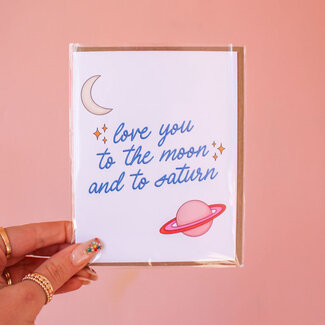 love you
to the moon
and to saturn